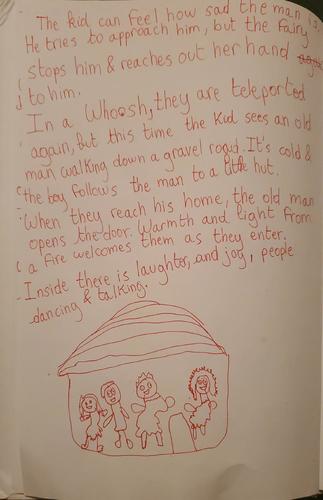 The kid can feel how sad the man is.
He tries to approach him, but the fairy
stops him & reaches out her hand
to him.
In a Whoosh, they are teleported
again, but this time the kid sees an old
man walking down a gravel road. It's cold &
the boy follows the man to a little hut.
When they reach his home, the old man
opens the door. Warmth and light from
a fire welcomes them as they enter.
Inside there is laughter, and joy, people
dancing & talking.